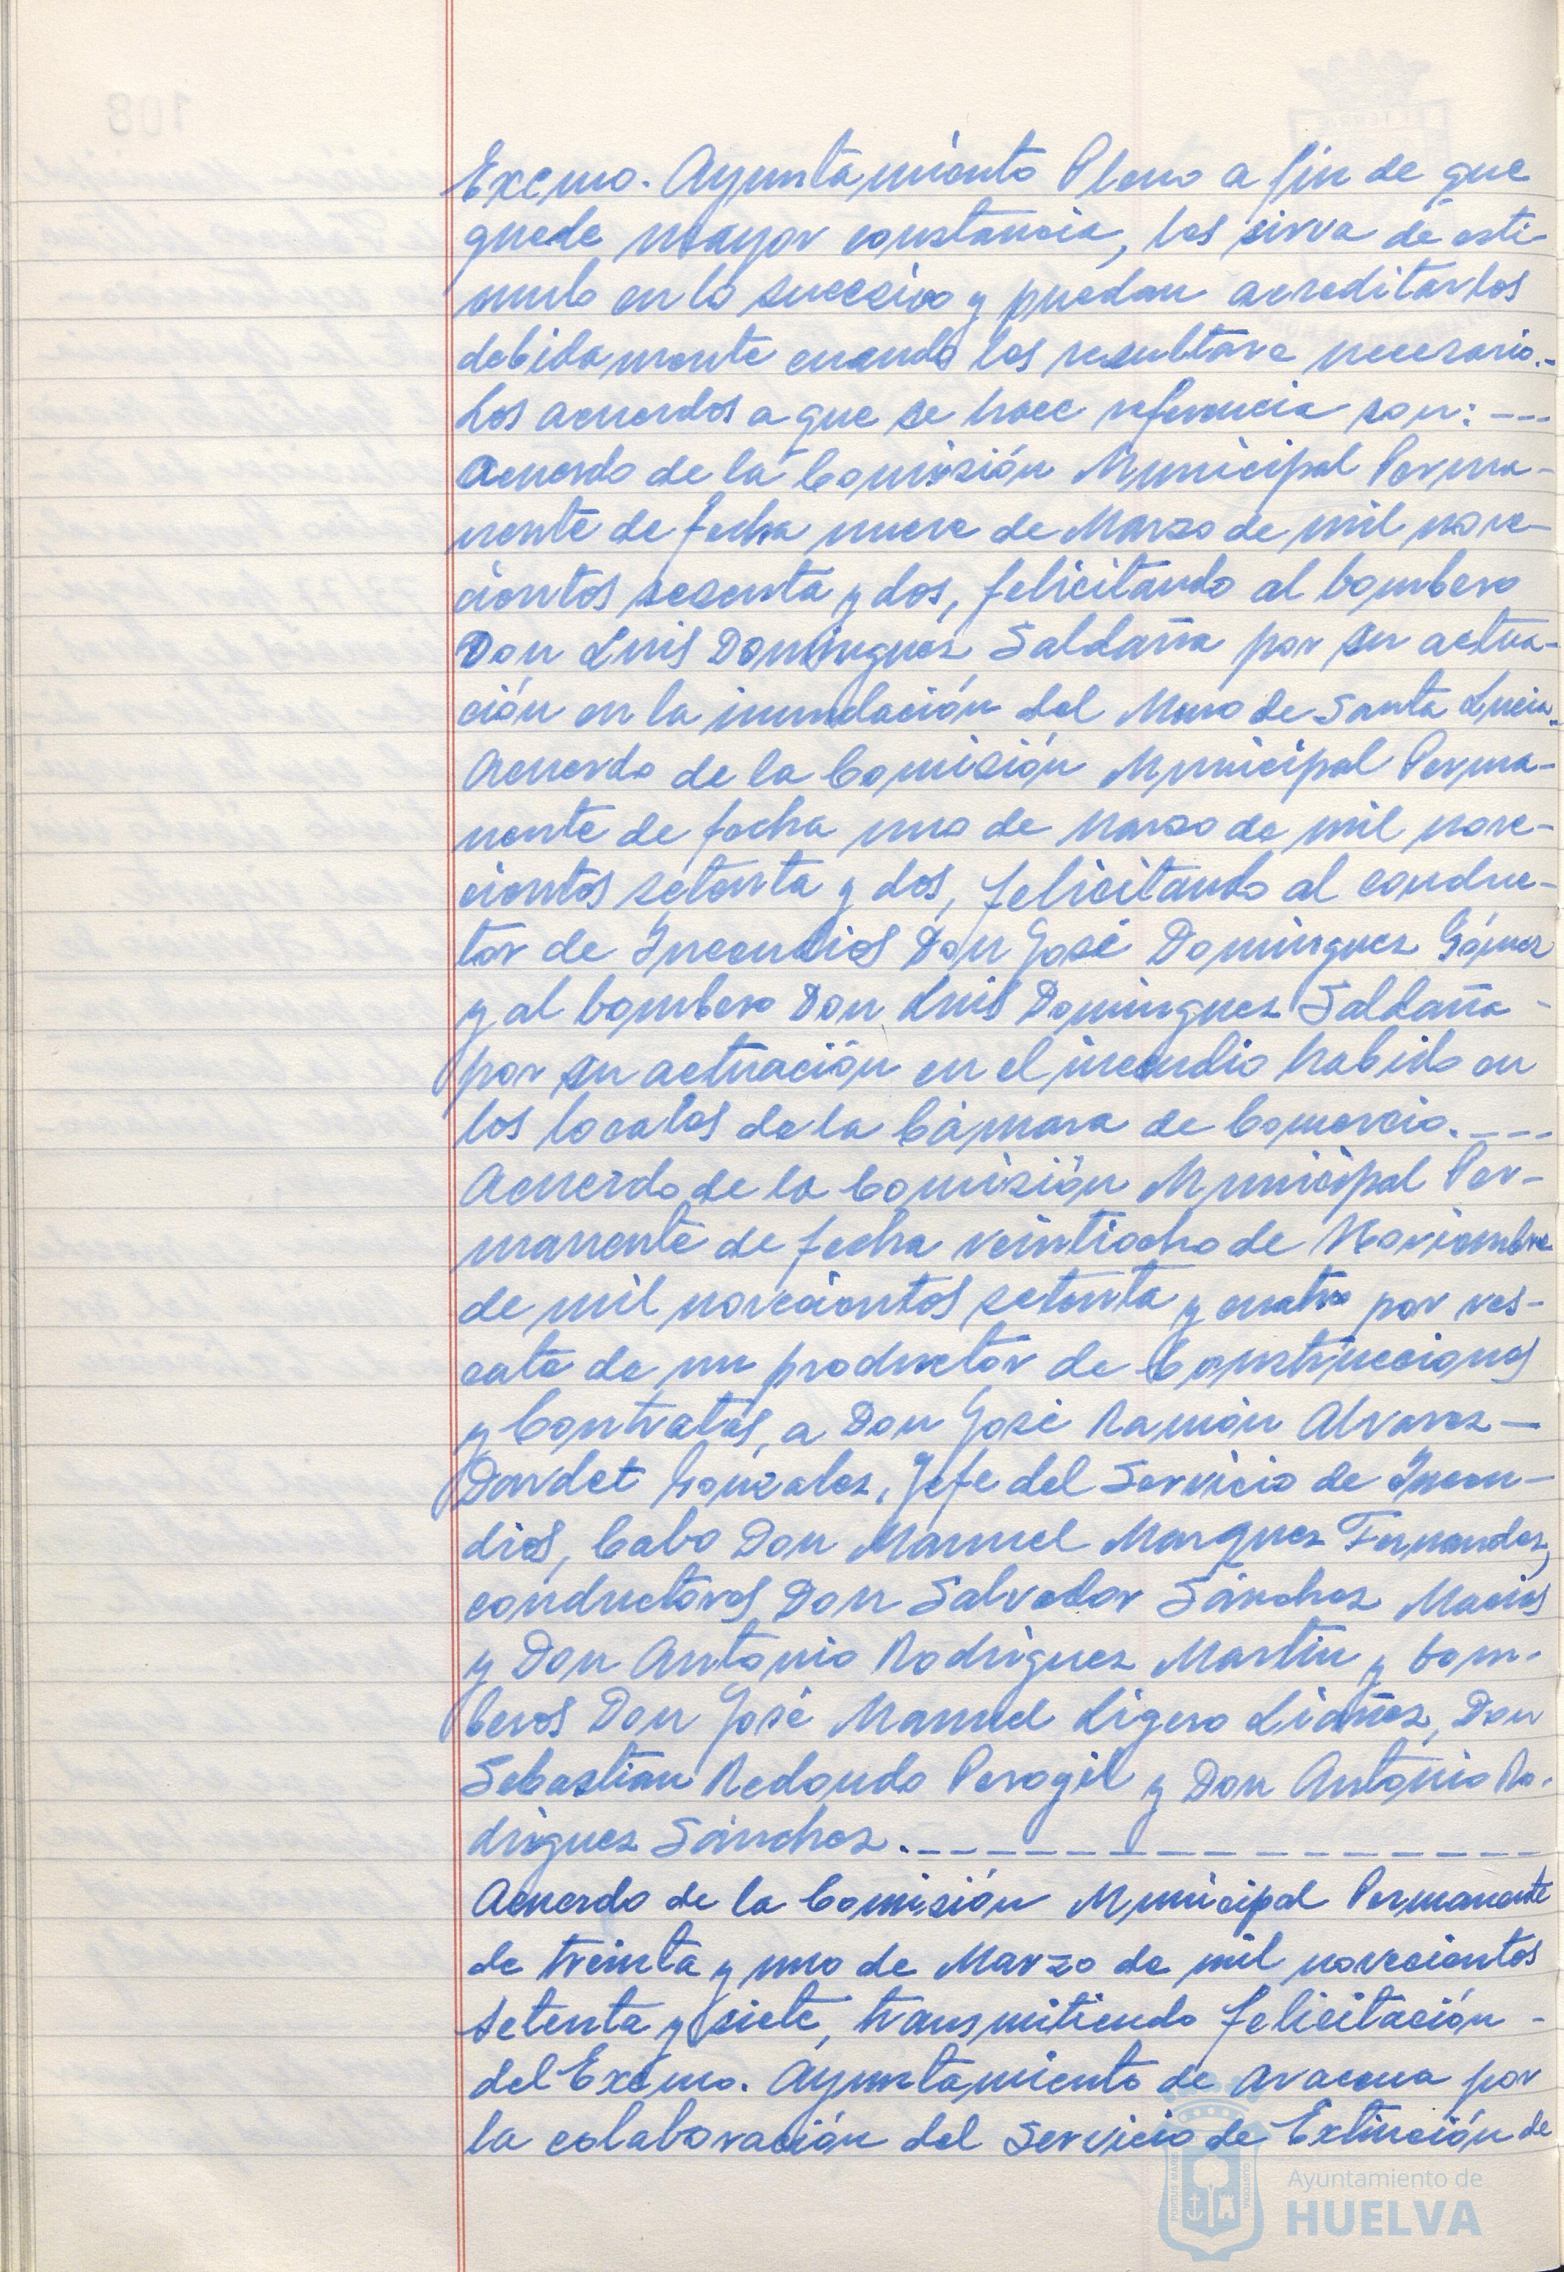 Excmo. Ayuntamiento Pleno a fin de que
quede mayor constancia, les sirva de estí-
mulo en lo sucesivo y puedan acreditarlos
debidamente cuando les resultare necesario.-
Los acuerdos a que se hace referencia son: ---
Acuerdo de la Comisión Municipal Perma-
nente de fecha nueve de Marzo de mil nove-
cientos sesenta y dos, felicitando al bombero
Don Luis Dominguez Saldaña por su actua-
ción en la inundación del Muro de Santa Lucia.-
Acuerdo de la Comisión Municipal Perma-
nente de fecha uno de Marzo de mil nove-
cientos setenta y dos, felicitando al conduc-
tor de Incendios Don José Dominguez Gómez
y al bombero Don Luis Dominguez Saldaña -
por su actuación en el incendio habido en
los locales de la Cámara de Comercio.----
Acuerdo de la Comisión Municipal Per-
manente de fecha veintiocho de Noviembre
de mil novecientos setenta y cuatro por res-
cate de un productor de Construcciones
y Contratas, a Don José Ramón Alvarez-
Dardet Gonzalez, Jefe del Servicio de Incen-
dios, Cabo Don Manuel Marquez Fernandez,
conductores Don Salvador Sánchez Macias
y Don Antonio Rodriguez Martin y bom-
beros Don José Manuel Ligero Liañez, Don
Sebastian Redondo Perogil y Don Antonio Ro-
driguez Sánchez.-----------------
Acuerdo de la Comisión Municipal Permanente
de treinta y uno de Marzo de mil novecientos
setenta y siete, transmitiendo felicitación -
del Excmo. Ayuntamiento de Aracena por
la colaboración del Servicio de Extinción de
Ayuntamiento de
HUELVA